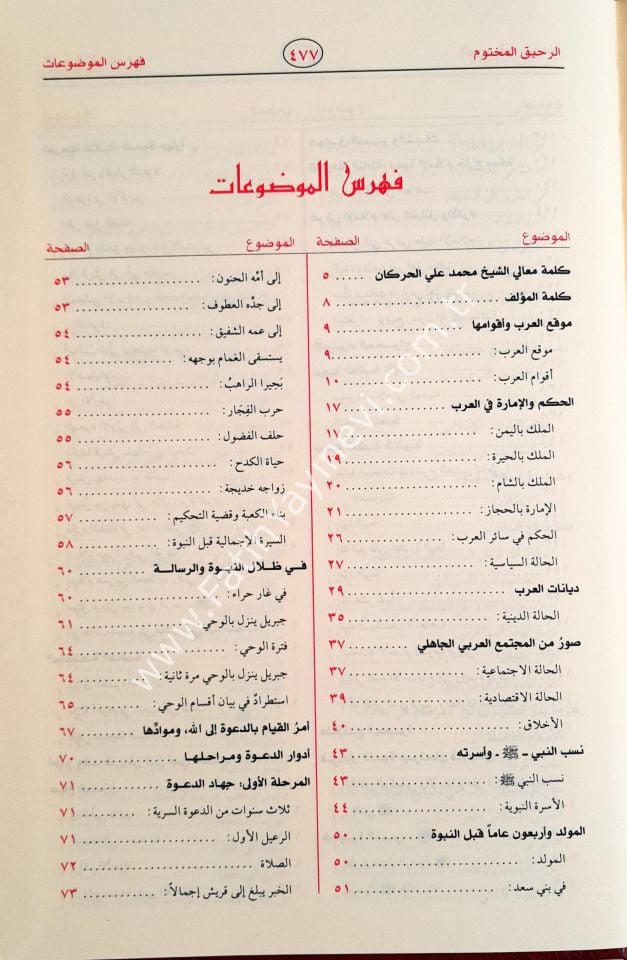 الرحيق المختوم
٤٧٧
فهرس الموضوعات
فهرس الموضوعات
الموضوع الصفحة
كلمة معالي الشيخ محمد علي الحركان ..... ٥
كلمة المؤلف ..................... ٨
موقع العرب وأقوامها ............. ٩
موقع العرب: ..................... ٩
أقوام العرب: .................... ١٠
الحكم والإمارة في العرب ......... ١٧
الملك باليمن: ................... ١٧
الملك بالحيرة: .................. ١٩
الملك بالشام: ................... ٢٠
الإمارة بالحجاز: ................ ٢١
الحكم في سائر العرب: ............ ٢٦
الحالة السياسية: ................ ٢٧
ديانات العرب .................... ٢٩
الحالة الدينية: ................. ٣٥
صورٌ من المجتمع العربي الجاهلي ... ٣٧
الحالة الاجتماعية: .............. ٣٧
الحالة الاقتصادية: .............. ٣٩
الأخلاق: ........................ ٤٠
نسب النبي ـ ﷺ ـ وأسرته .......... ٤٣
نسب النبي ﷺ: .................... ٤٣
الأسرة النبوية: ................. ٤٤
المولد وأربعون عاماً قبل النبوة ... ٥٠
المولد: ......................... ٥٠
في بني سعد: ..................... ٥١
الموضوع الصفحة
إلى أمِّه الحنون: ................ ٥٣
إلى جدِّه العطوف: ................ ٥٣
إلى عمه الشفيق: ................. ٥٤
يستسقى الغمام بوجهه: ............ ٥٤
بَحِيرا الراهبُ: ................... ٥٤
حرب الفِجَار: ..................... ٥٥
حلف الفضول: ..................... ٥٥
حياة الكدح: ..................... ٥٦
زواجه خديجة: .................... ٥٦
بناء الكعبة وقضية التحكيم: ...... ٥٧
السيرة الإجمالية قبل النبوة: ..... ٥٨
في ظلال النبوة والرسالة ......... ٦٠
في غار حراء: .................... ٦٠
جبريل ينزل بالوحي: .............. ٦١
فترة الوحي: ..................... ٦٤
جبريل ينزل بالوحي مرة ثانية: .... ٦٤
استطرادٌ في بيان أقسام الوحي: .... ٦٥
أمرُ القيام بالدعوة إلى الله، وموادِّها ٦٧
أدوار الدعوة ومراحلها ........... ٧٠
المرحلة الأولى: جهاد الدعوة ..... ٧١
ثلاث سنوات من الدعوة السرية: .... ٧١
الرعيل الأول: ................... ٧١
الصلاة .......................... ٧٢
الخبر يبلغ إلى قريش إجمالاً: ..... ٧٣
www.FatihYayinevi.com.tr